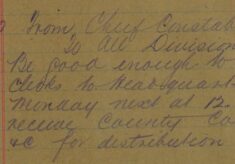 From Chief Constab
To All Division
Be good enough to
clerks to Headquart
Monday next at 12.
receive County Co
&c for distribution